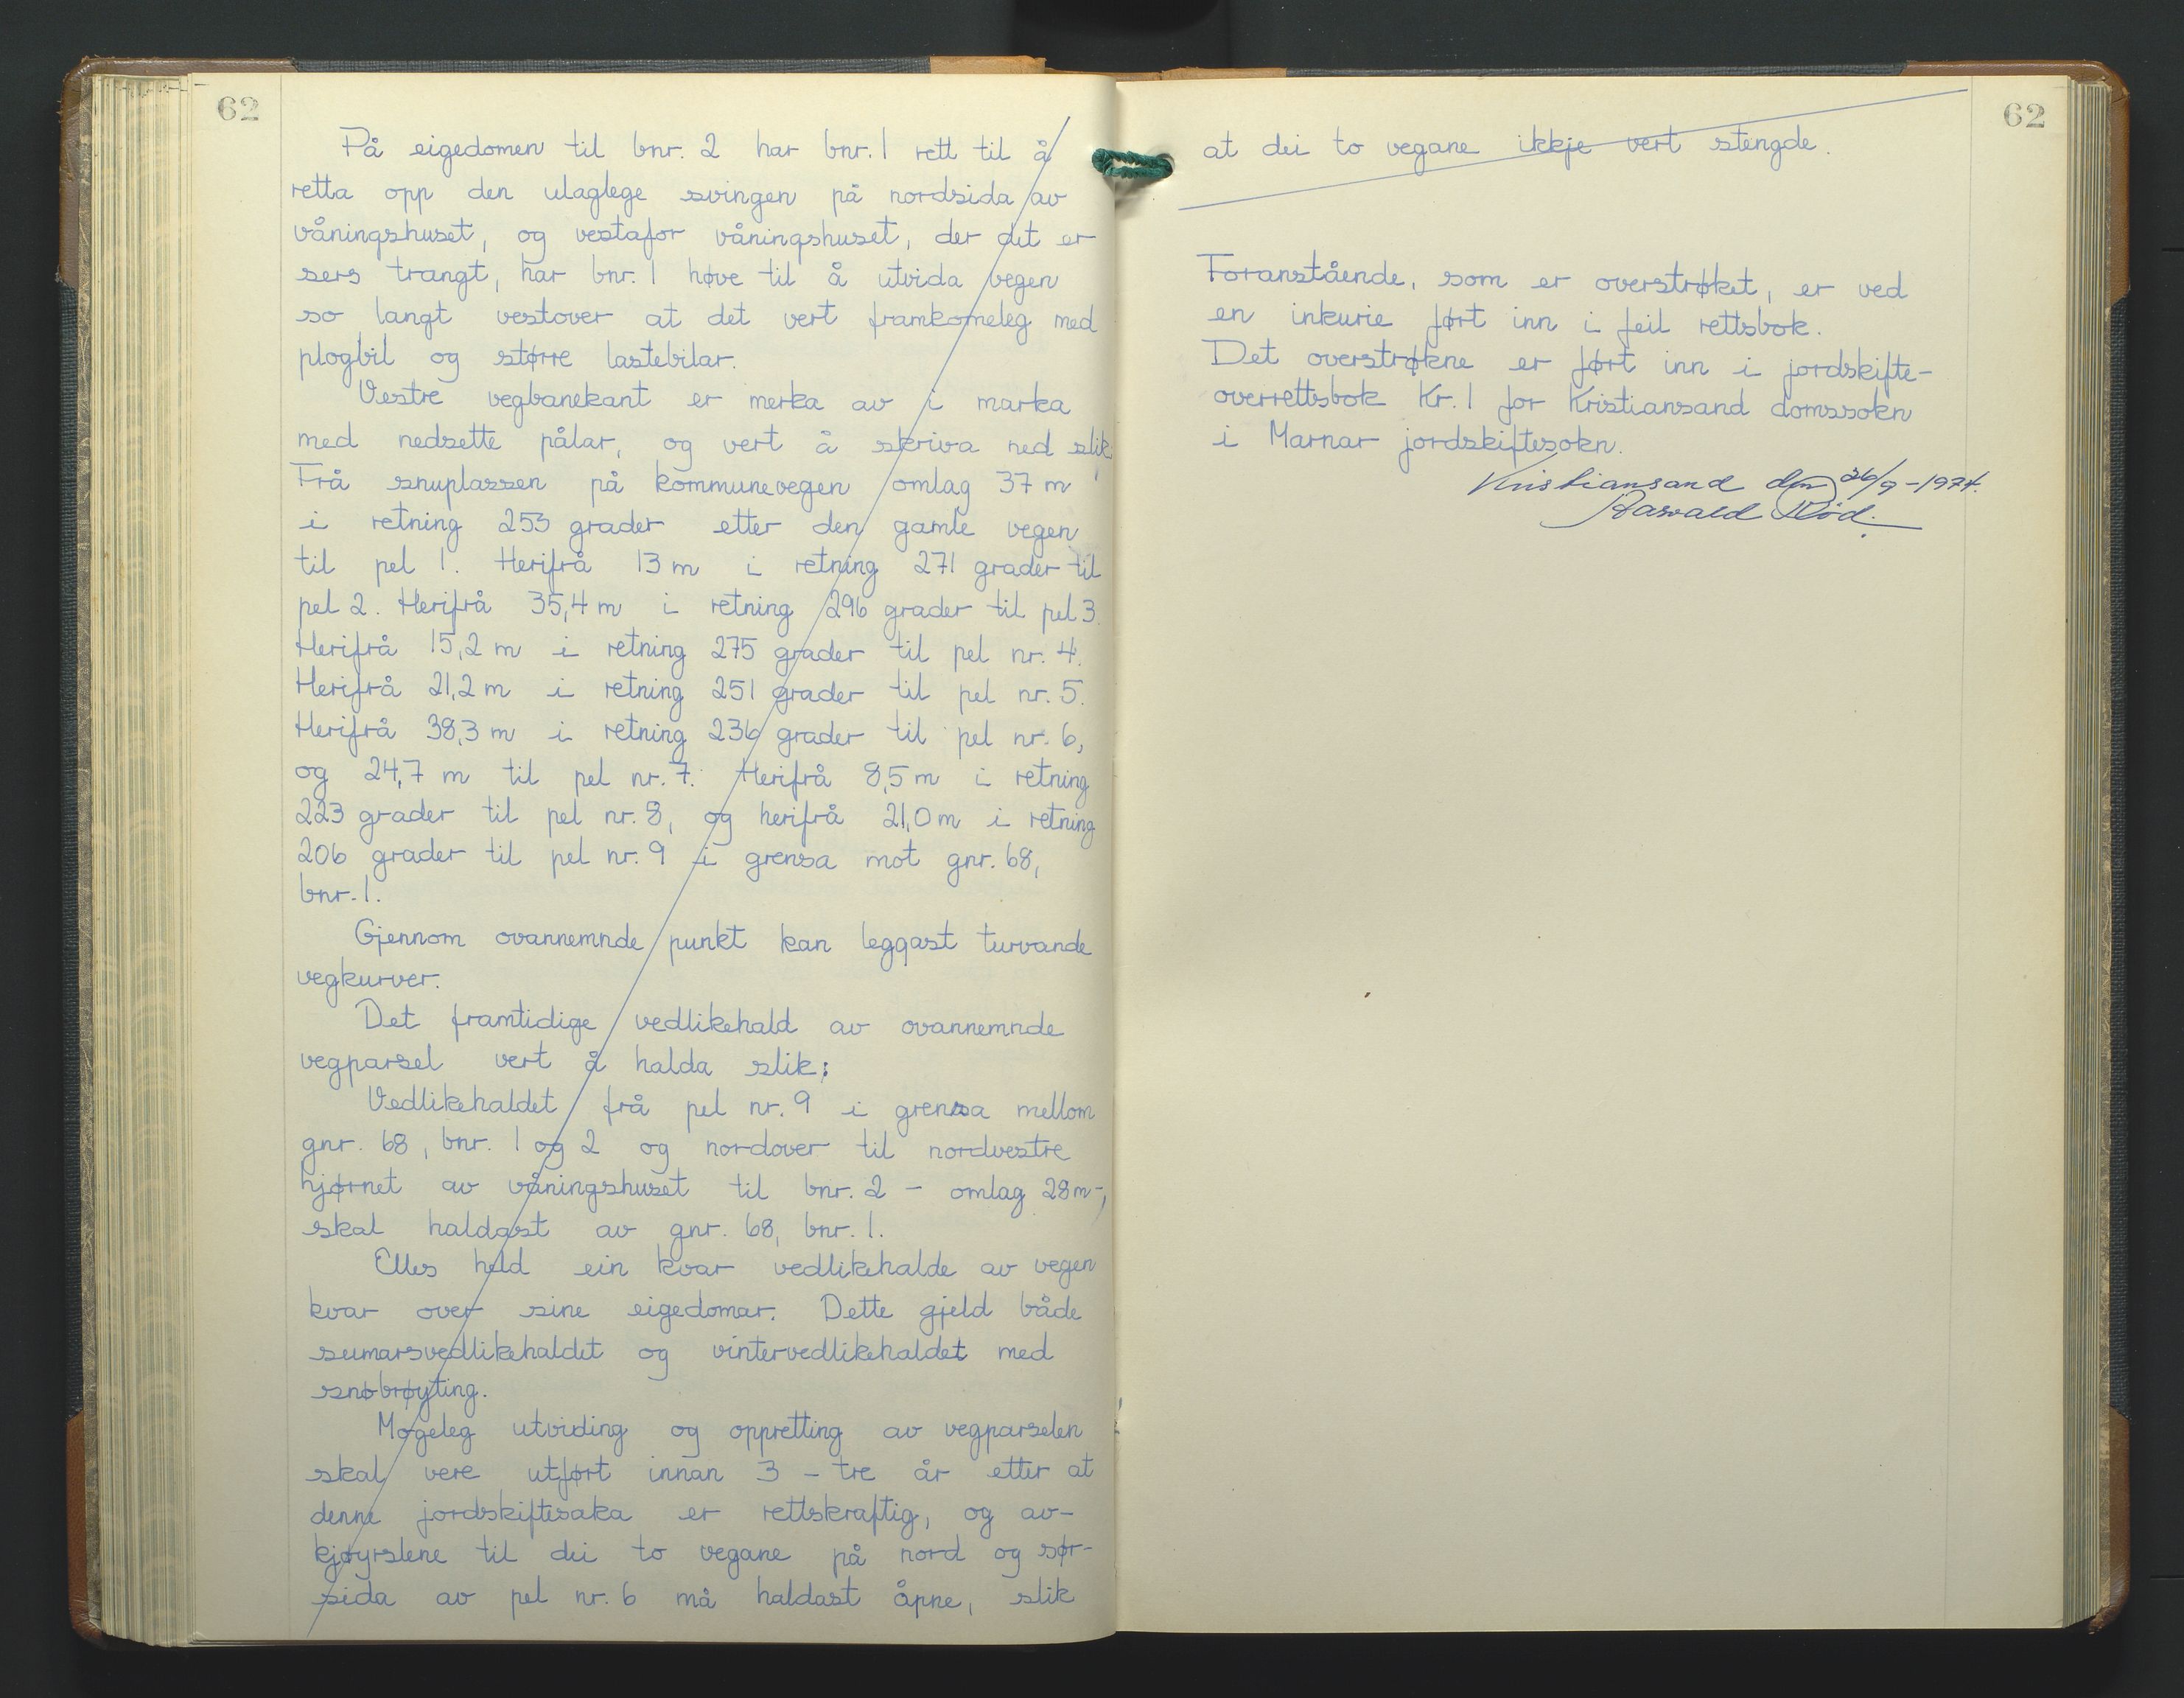 62
På eigedomen til bnr. 2 har bnr. 1 rett til å
retta opp den ulaglege svingen på nordsida av
våningshuset, og vestafor våningshuset, der det er
sers trangt, har bnr. 1 høve til å utvida vegen
so langt vestover at det vert framkomeleg med
plogbil og større lastebilar.
Vestre vegbanekant er merka av i marka
med nedsette pålar, og vert å skriva ned slik:
Frå snuplassen på kommunevegen omlag 37 m
i retning 253 grader etter den gamle vegen
til pel 1. Herifrå 13 m i retning 271 grader til
pel 2. Herifrå 35,4 m i retning 296 grader til pel 3.
Herifrå 15,2 m i retning 275 grader til pel nr. 4.
Herifrå 21,2 m i retning 251 grader til pel nr. 5.
Herifrå 38,3 m i retning 236 grader til pel nr. 6,
og 24,7 m til pel nr. 7. Herifrå 8,5 m i retning
223 grader til pel nr. 8, og herifrå 21,0 m i retning
206 grader til pel nr. 9 i grensa mot gnr. 68,
bnr. 1.
Gjennom ovannemnde punkt kan leggast turvande
vegkurver.
Det framtidige vedlikehald av ovannemnde
vegparsel vert å halda slik:
Vedlikehaldet frå pel nr. 9 i grensa mellom
gnr. 68, bnr. 1 og 2 og nordover til nordvestre
hjørnet av våningshuset til bnr. 2 - omlag 28 m -,
skal haldast av gnr. 68, bnr. 1.
Elles held ein kvar vedlikehalde av vegen
kvar over sine eigedomar. Dette gjeld både
sumarsvedlikehaldet og vintervedlikehaldet med
snøbrøyting.
Mogeleg utviding og oppretting av vegparselen
skal vere utført innan 3 - tre år etter at
denne jordskiftesaka er rettskraftig, og av-
kjøyrslene til dei to vegane på nord og sør-
sida av pel nr. 6 må haldast åpne, slik
62
at dei to vegane ikkje vert stengde.
Foranstående, som er overstrøket, er ved
en inkurie ført inn i feil rettsbok.
Det overstrøkne er ført inn i jordskifte-
overrettsbok Kr. 1 for Kristiansand domssokn
i Marnar jordskiftesokn.
Kristiansand den 26/9-1974.
Rød.